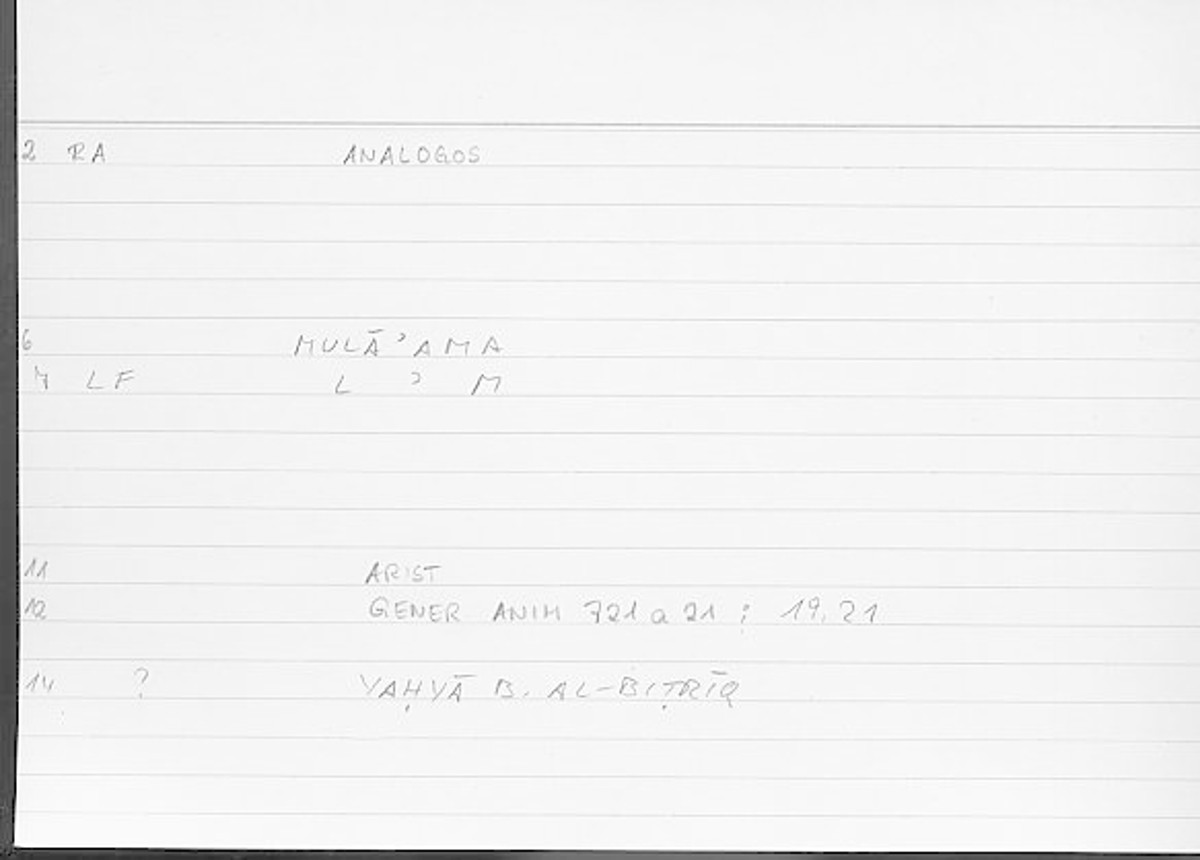 2 RA ANALOGOS
6 MULĀʾAMA
7 LF L ʾ M
11 ARIST
12 GENER ANIM 721 a 21 ; 19,21
14 ? YAḤYĀ B. AL-BIṬRĪQ